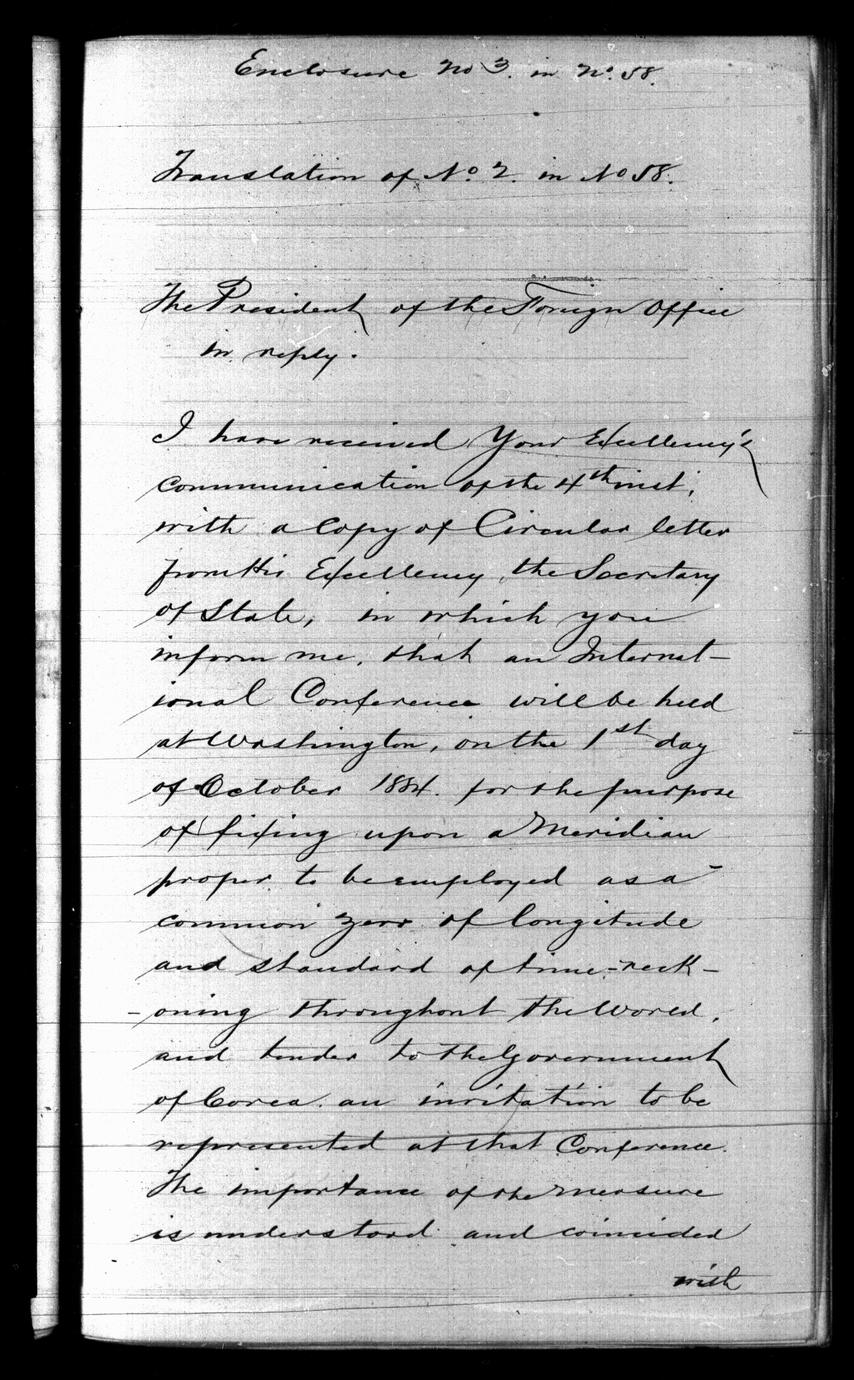 Enclosure No 3. in No. 58.
Translation of No. 2. in No 58.
The President of the Foreign Office
in reply.
I have received Your Excellency's
communication of the 4th inst,
with a Copy of Circular letter
from His Excellency, the Secretary
of State, in which you
inform me, that an Internat-
ional Conference will be held
at Washington, on the 1st day
of October 1884. for the purpose
of fixing upon a Meridian
proper to be employed as a
common zero of longitude
and standard of time-reck-
-oning throughout the World,
and tender to the Government
of Corea an invitation to be
represented at that Conference.
The importance of the measure
is understood and coincided
with